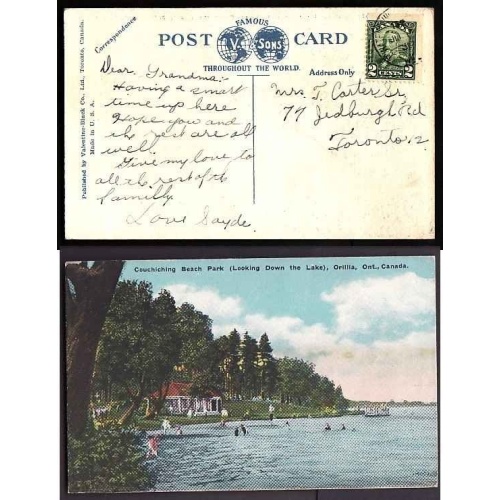 Published by Valentine-Black Co., Ltd., Toronto, Canada.
Made in U. S. A.
Correspondence
FAMOUS
POST V. & SONS CARD
THROUGHOUT THE WORLD.
Address Only
CANADA
2 CENTS 2
Dear Grandma:-
Having a smart
time up here
Hope you and
the rest are all
well.
Give my love to
all the rest of the
family
Love Sayde.
Mrs. T. Carter Sr,
77 Jedburgh Rd
Toronto 12.
Couchiching Beach Park (Looking Down the Lake), Orillia, Ont., Canada.